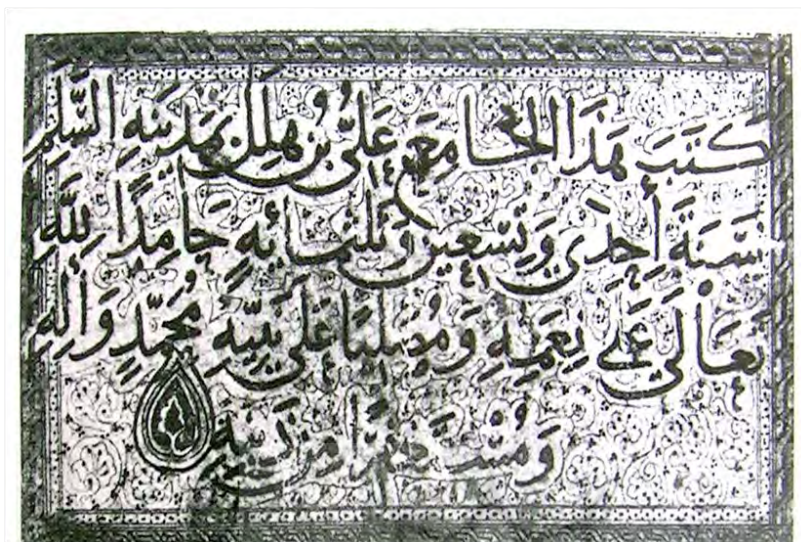 كَتَبَ هَذَا الجَامِعَ عَلِيُّ بْنُ هِلَلٍ بِمَدِينَةِ السَّلَمِ
سَنَةَ إِحْدَى وَتِسْعِينَ وَثَلْثِمِائَةٍ حَامِدًا لِلَّهِ
تَعَالَى عَلَى نِعَمِهِ وَمُصَلِّيًا عَلَى نَبِيِّهِ مُحَمَّدٍ وَأَلِهِ
وَمُسْتَغْفِرًا مِن ذَنْبِهِ